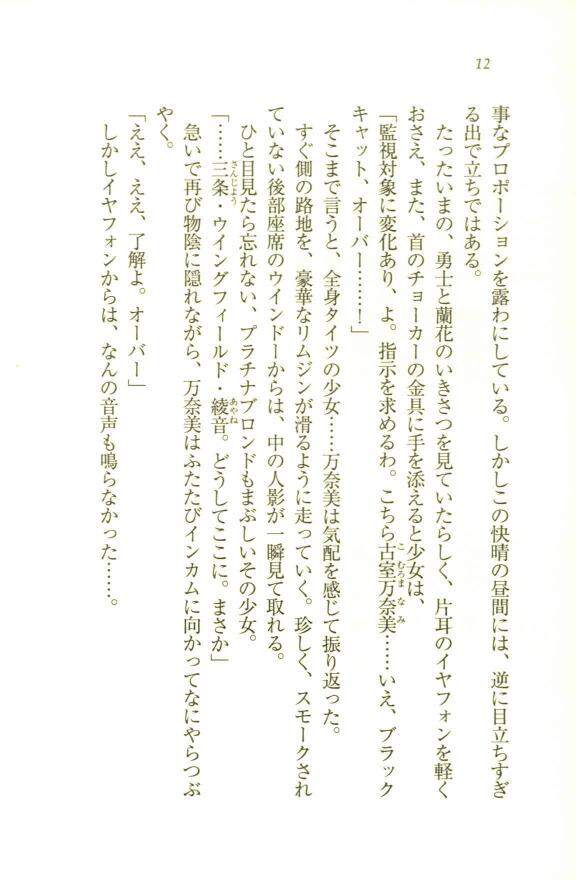 12
事なプロポーションを露わにしている。しかしこの快晴の昼間には、逆に目立ちすぎ
る出で立ちではある。
たったいまの、勇士と蘭花のいきさつを見ていたらしく、片耳のイヤフォンを軽く
おさえ、また、首のチョーカーの金具に手を添えると少女は、
「監視対象に変化あり、よ。指示を求めるわ。こちら古室万奈美……いえ、ブラック
キャット、オーバー……！」
そこまで言うと、全身タイツの少女……万奈美は気配を感じて振り返った。
すぐ側の路地を、豪華なリムジンが滑るように走っていく。珍しく、スモークされ
ていない後部座席のウインドーからは、中の人影が一瞬見て取れる。
ひと目見たら忘れない、プラチナブロンドもまぶしいその少女。
「……三条・ウイングフィールド・綾音。どうしてここに。まさか」
急いで再び物陰に隠れながら、万奈美はふたたびインカムに向かってなにやらつぶ
やく。
「ええ、ええ、了解よ。オーバー」
しかしイヤフォンからは、なんの音声も鳴らなかった……。